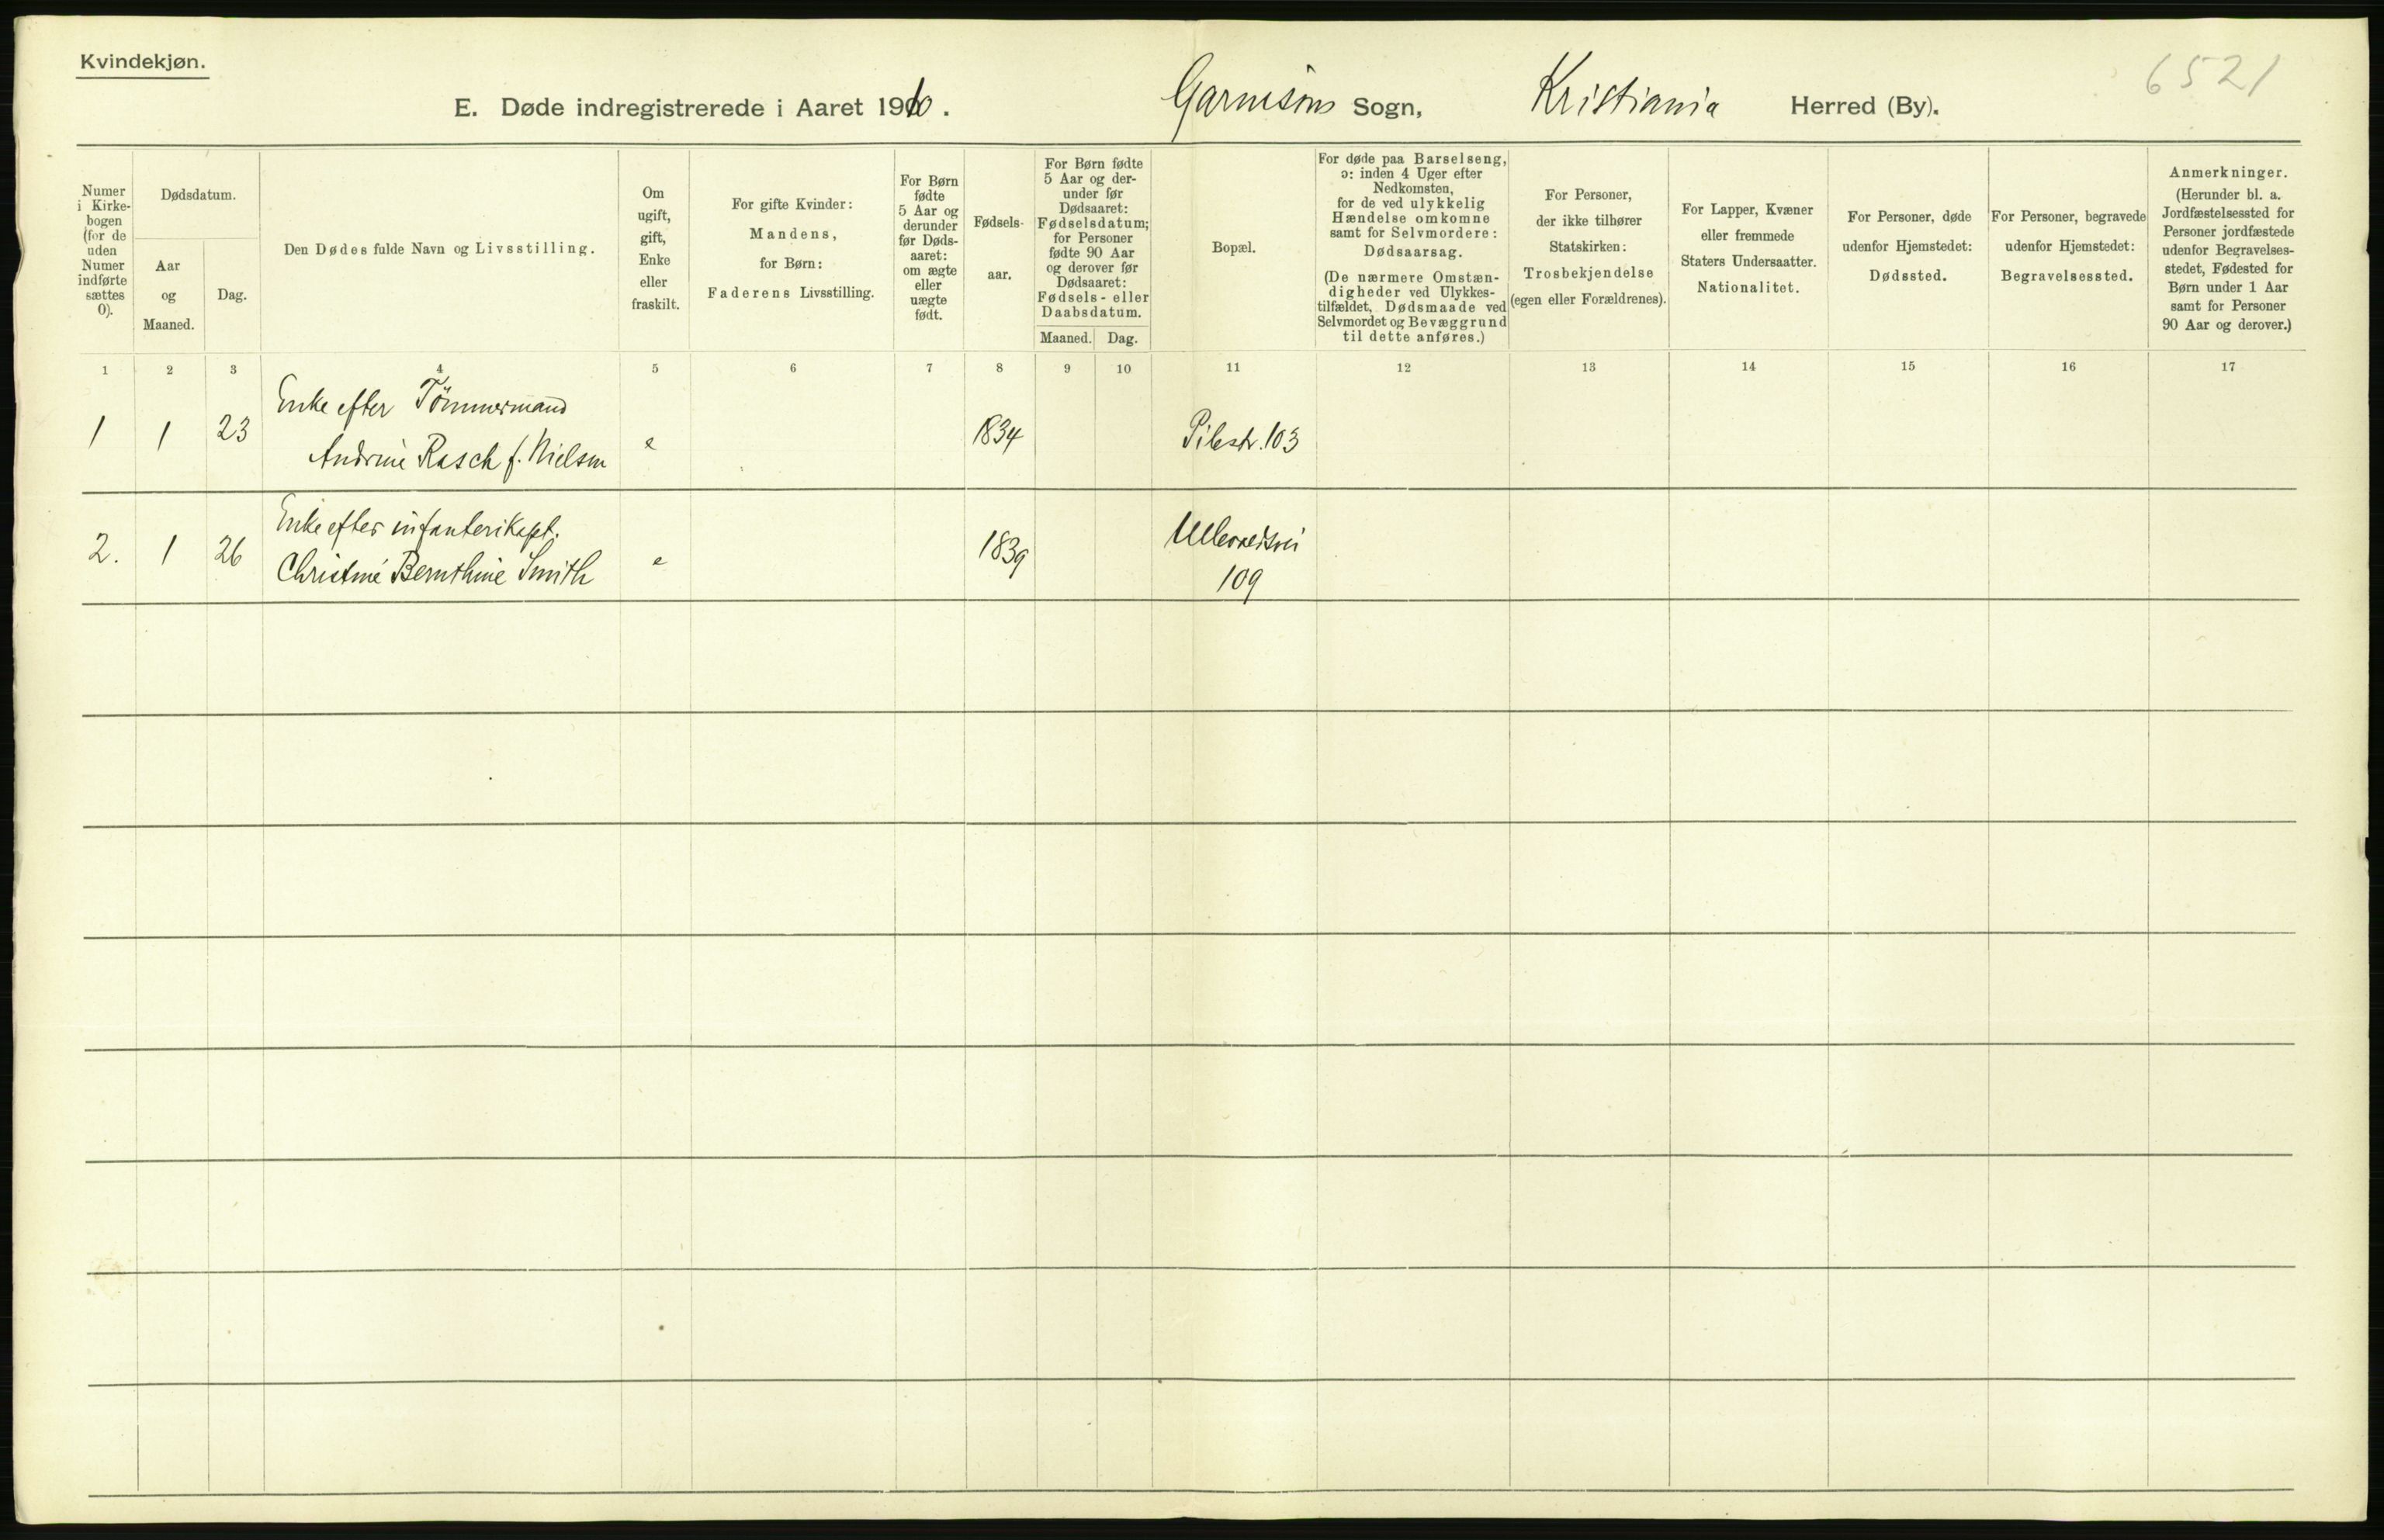 Kvindekjøn.
6521
E. Døde indregistrerede i Aaret 1910. Garnisons Sogn, Kristiania Herred (By).
Numer i Kirkebogen (for de uden Numer indførte sættes 0).
Dødsdatum.
Aar og Maaned.
Dag.
Den Dødes fulde Navn og Livsstilling.
Om ugift, gift, Enke eller fraskilt.
For gifte Kvinder: Mandens, for Børn: Faderens Livsstilling.
For Børn fødte 5 Aar og derunder før Døds-aaret: om ægte eller uægte født.
Fødsels-aar.
For Børn fødte 5 Aar og der-under før Dødsaaret: Fødselsdatum; for Personer fødte 90 Aar og derover før Dødsaaret: Fødsels- eller Daabsdatum.
Maaned. Dag.
Bopæl.
For døde paa Barselseng, ɔ: inden 4 Uger efter Nedkomsten, for de ved ulykkelig Hændelse omkomne samt for Selvmordere: Dødsaarsag. (De nærmere Omstæn-digheder ved Ulykkes-tilfældet, Dødsmaade ved Selvmordet og Bevæggrund til dette anføres.)
For Personer, der ikke tilhører Statskirken: Trosbekjendelse (egen eller Forældrenes).
For Lapper, Kvæner eller fremmede Staters Undersaatter. Nationalitet.
For Personer, døde udenfor Hjemstedet: Dødssted.
For Personer, begravede udenfor Hjemstedet: Begravelsessted.
Anmerkninger. (Herunder bl. a. Jordfæstelsessted for Personer jordfæstede udenfor Begravelses-stedet, Fødested for Børn under 1 Aar samt for Personer 90 Aar og derover.)
1 2 3 4 5 6 7 8 9 10 11 12 13 14 15 16 17
Enke efter Tömmermand
1 1 23 Andrine Rasch f. Nielsen e 1834 Pilestr. 103
Enke efter infanterikapt.
2. 1 26 Christine Bernthine Smith e 1839 Ullevaldsvei
109